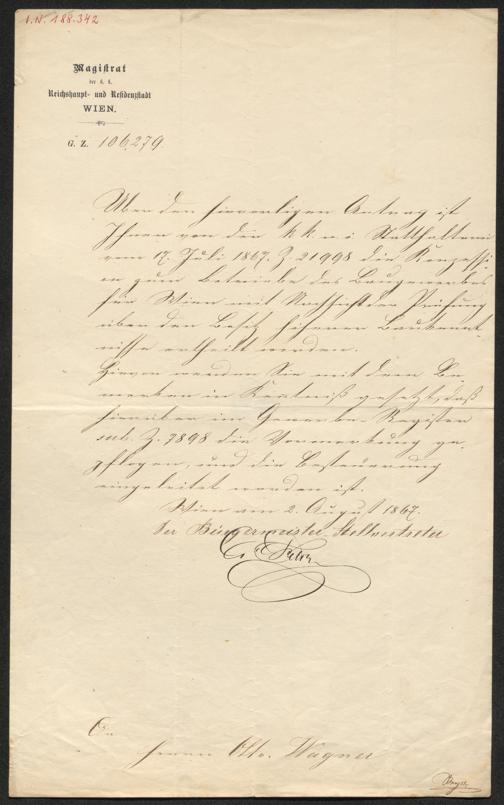 I.N. 188.342
Magistrat
der k. k.
Reichshaupt- und Residenzstadt
WIEN.
G. Z. 106.279
Über den hierortigen Antrag ist
Ihnen von der k k n i Statthalterei
vom 17. Juli 1867. Z. 21998 die Konzessi-
on zum Betriebe des Baugewerbes
für Wien mit Nachsicht der Prüfung
über den Besitz höherer Baukennt-
nisse ertheilt worden.
Hievon werden Sie mit dem Be-
merken in Kentniß gesetzt, daß
hierüber im Gewerbe-Register
sub. Z. 7898 die Vormerkung ge-
pflogen, und die Besteuerung
eingeleitet worden ist.
Wien am 2. August 1867.
Der Bürgermeister-Stellvertreter
An
Herrn Otto Wagner